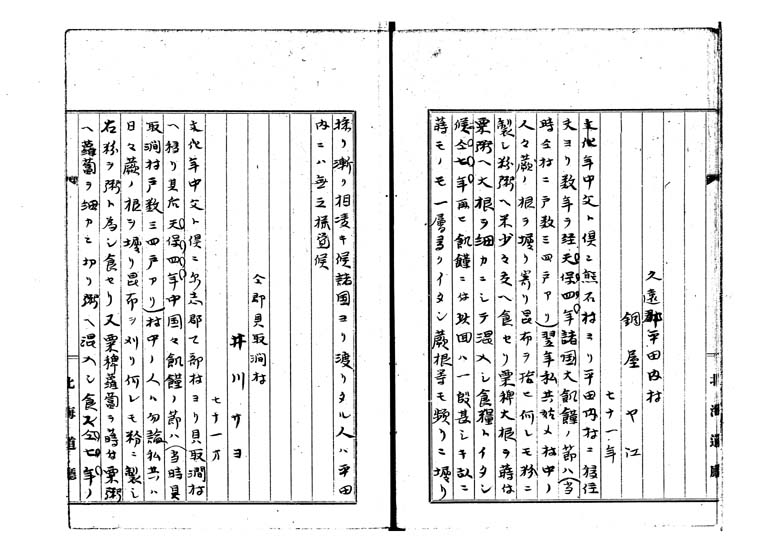 久遠郡平田内村
銅屋ヤ江
七十一年
文化年中父ト倶ニ熊石村ヨリ平田内村ニ移住
夫ヨリ数年ヲ経天保四年諸国大飢饉ノ節ハ(当
時仝村ニ戸数三四戸アリ)翌年私共始メ村中ノ
人々蕨ノ根ヲ堀リ寄リ昆布ヲ拾ヒ何レモ粉ニ
製シ粉粥ヘ米少々交ヘ食セリ粟稗大根ヲ蒔付
粟粥ヘ大根ヲ細カニシテ混入シ食糧トイタシ
候仝七年再ヒ飢饉ニ付此回ハ一段甚シキ故ニ
蒔モノモ一層多クイタシ蕨根等モ頻リニ堀リ
北海道庁
採リ漸ク相凌キ候諸国ヨリ渡リタル人ハ平田
内ニハ無之様覚候
仝郡貝取澗村
井川サヨ
七十一才
文化年中父ト倶ニ尓志郡乙部村ヨリ貝取澗村
ヘ移リ其后天保四年中国々飢饉ノ節ハ(当時貝
取澗村戸数三四戸アリ)村中ノ人ハ勿論私共ハ
日々蕨ノ根ヲ堀リ昆布ヲ刈リ何レモ粉ニ製シ
右粉ヲ粥ト為シ食セリ又粟稗蘿蔔ヲ蒔付粟粥
ヘ蘿蔔ヲ細カニ切リ粥ヘ混入シ食ス仝七年ノ
北海道庁